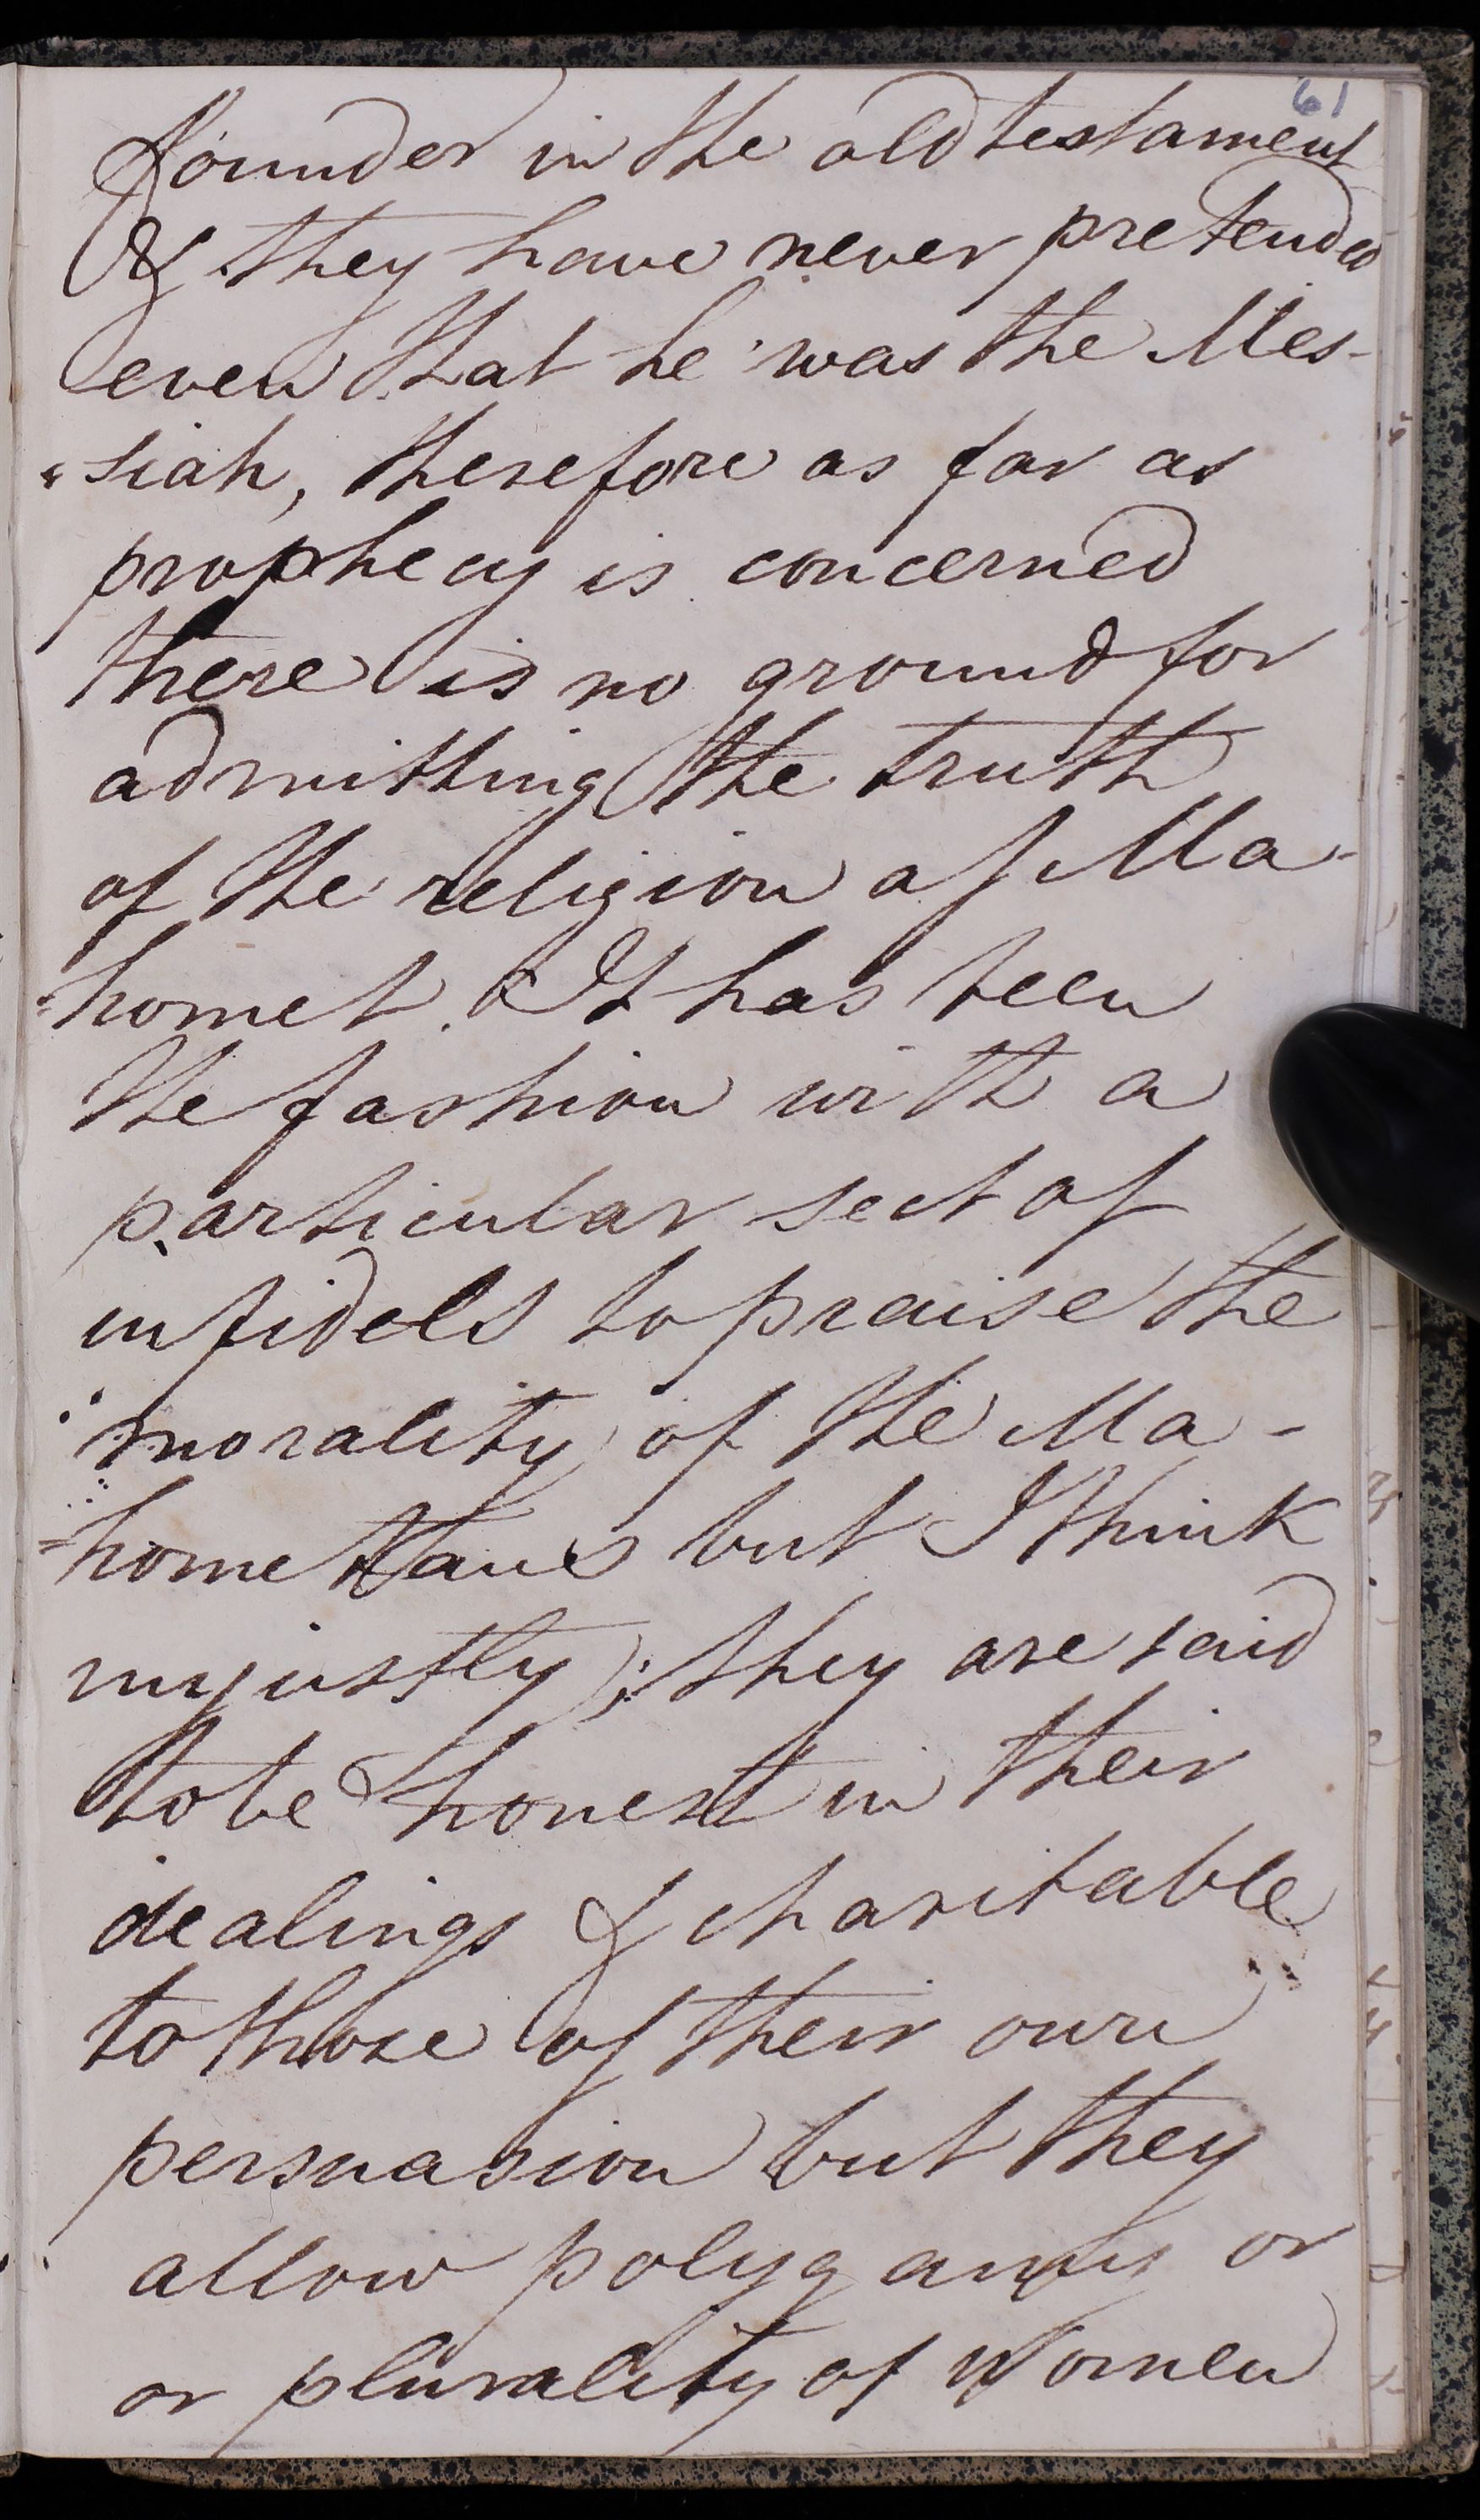 61
founder in the old testament
& they have never pretended
even that he was the Mes-
"siah, therefore as far as
prophecy is concerned
there is no ground for
admitting the truth
of the religion of Ma-
=homet. It has been
the fashion with a
particular sect of
infidels to praise the
morality of the Ma-
=hometans but I think
unjustly; they are said
to be honest in their
dealings & charitable
to those of their own
persuasion but they
allow polygamy or
or plurality of Women